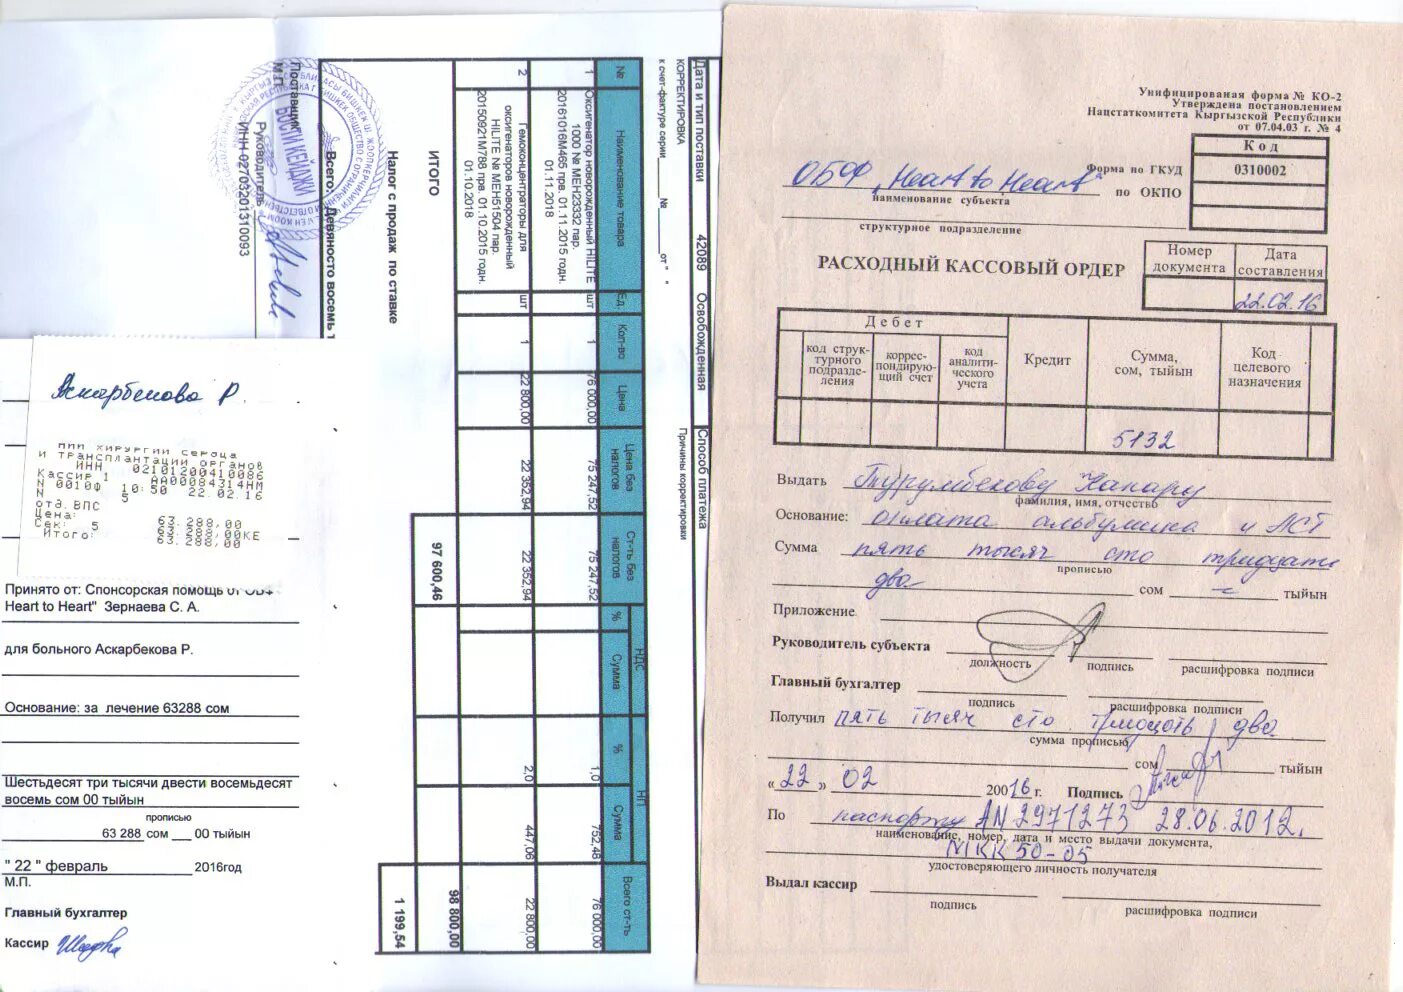 Поставщик
М.П.
Руководитель
ИНН 02703201310093
Всего: Девяносто восемь т
Дата и тип поставки 42089 Освобожденная Способ платежа
КОРРЕКТИРОВКА Причины корректировки
к счет-фактуре серии № от " "
№ Наименование товара Ед. Кол-во Цена Цена без налогов Ст-ть без налогов НДС % Сумма НП % Сумма Всего ст-ть
1 Оксигенатор новорожденный HILITE 1000 № MEH23332 пар. 20161016M465 прв. 01.11.2015 годн. 01.11.2018 шт 1 76 000,00 75 247,52 75 247,52 1,0 752,48 76 000,00
2 Гемоконцентраторы для оксигенаторов новорожденный HILITE № MEH51504 пар. 20150921M788 прв. 01.10.2015 годн. 01.10.2018 шт 1 22 800,00 22 352,94 22 352,94 2,0 447,06 22 800,00
ИТОГО 97 600,46 98 800,00
Налог с продаж по ставке 1 199,54
Аскарбекова Р.
НИИ ХИРУРГИИ СЕРДЦА
И ТРАНСПЛАНТАЦИИ ОРГАНОВ
ИНН 02101200410086
Кассир 1 АА00084314НМ
N 0010Ф 10:50 22.02.16
N 5
отд.ВПС
Цена: 63.288,00
Сек: 5 63.288,00КЕ
Итого: 63.288,00
Принято от: Спонсорская помощь от ОБФ
Heart to Heart" Зернаева С. А.
для больного Аскарбекова Р.
Основание: за лечение 63288 сом
Шестьдесят три тысячи двести восемьдесят
восемь сом 00 тыйын
прописью
63 288 сом 00 тыйын
" 22 " февраль 2016год
М.П.
Главный бухгалтер
Кассир
Унифицированая форма № КО-2
Утверждена постановлением
Нацстаткомитета Кыргызской Республики
от 07.04.03 г. № 4
Код
Форма по ГКУД 0310002
ОБФ "Heart to Heart" по ОКПО
наименование субъекта
структурное подразделение
РАСХОДНЫЙ КАССОВЫЙ ОРДЕР
Номер документа Дата составления
22.02.16
Дебет
код структурного подразделения корреспондирующий счет код аналитического учета Кредит Сумма, сом, тыйын Код целевого назначения
5132
Выдать Турумбекову Канару
фамилия, имя, отчество
Основание: оплата альбумина и АСТ
Сумма пять тысяч сто тридцать
прописью
два сом тыйын
Приложение
Руководитель субъекта
должность подпись расшифровка подписи
Главный бухгалтер
подпись расшифровка подписи
Получил пять тысяч сто тридцать два
сумма прописью
сом тыйын
« 22 » 02 20016 г. Подпись
По паспорту AN 2971273 28.06.2012.
наименование, номер, дата и место выдачи документа,
МКК 50-05
удостоверяющего личность получателя
Выдал кассир
подпись расшифровка подписи